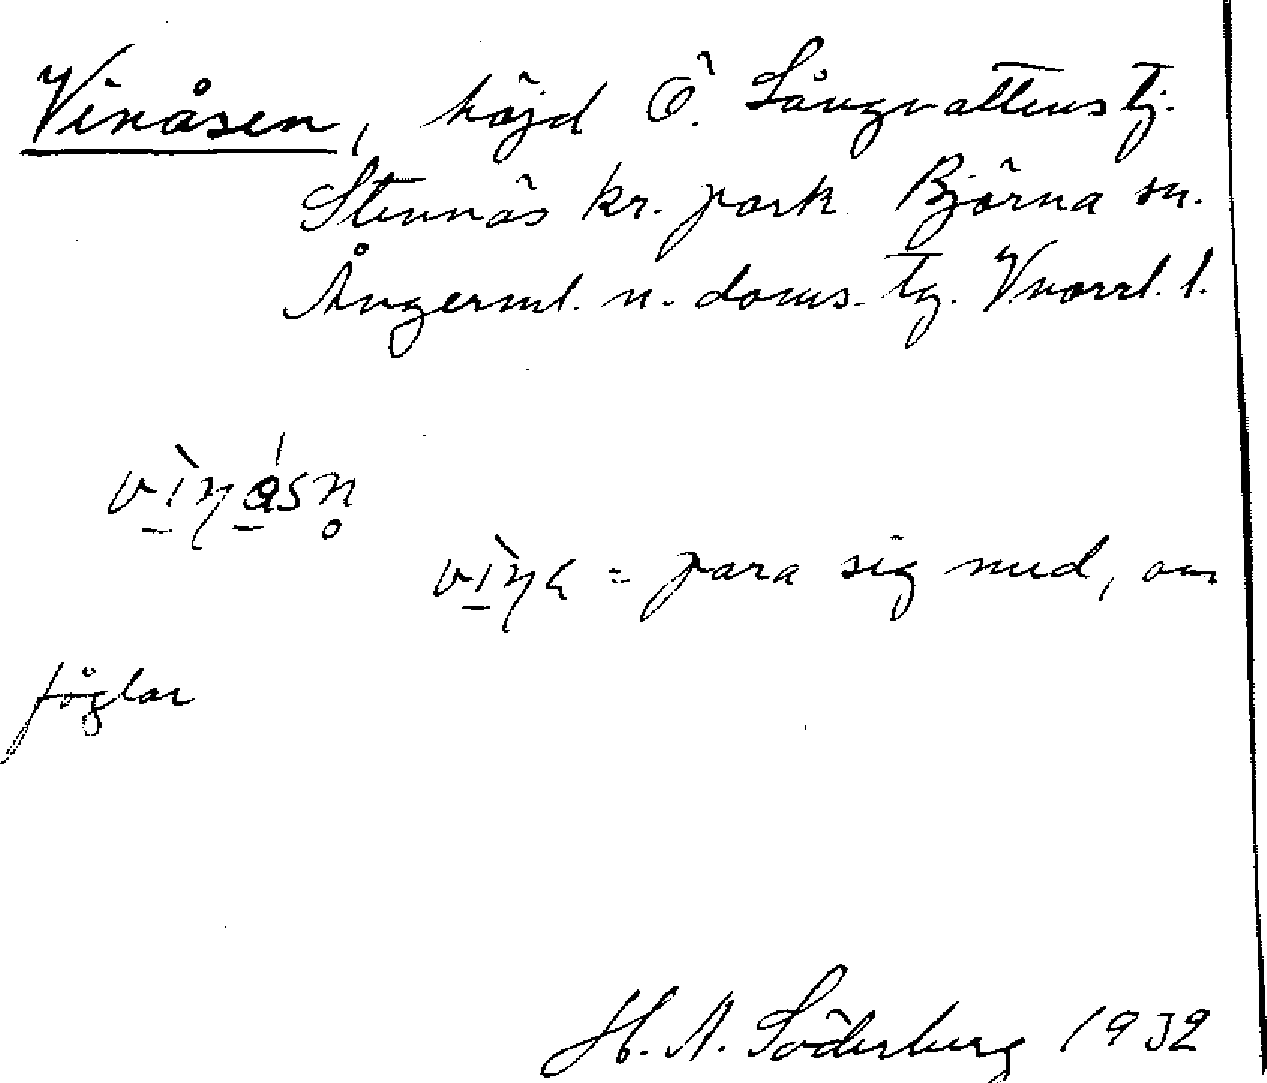 Vinåsen, höjd Ö. Långvattenstj.
Stennäs kr. park Björna sn.
Ångerml. n. doms. tg. Vnorrl. l.
vìŋásn̥
vìŋ = para sig med, om
föglar
H. A. Söderberg 1932